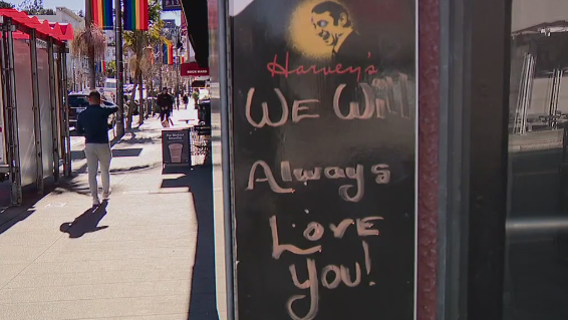 Harvey's
WE Will
Always
LOVE
You!